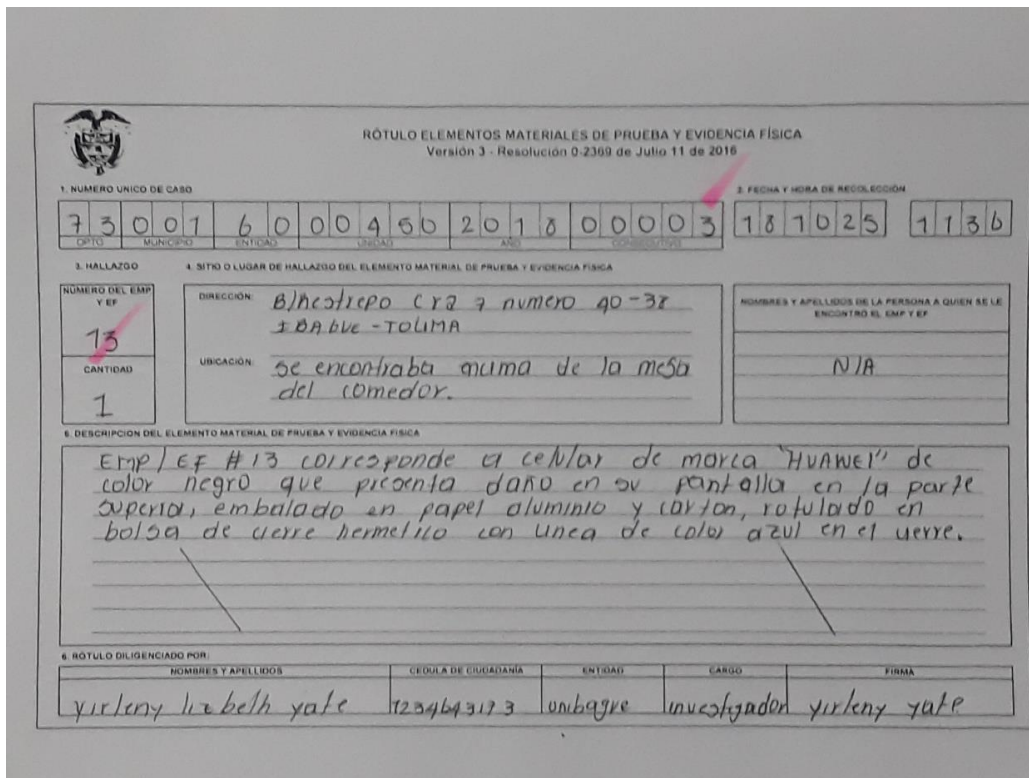 RÓTULO ELEMENTOS MATERIALES DE PRUEBA Y EVIDENCIA FÍSICA
Versión 3 - Resolución 0-2369 de Julio 11 de 2016
1. NUMERO UNICO DE CASO
2. FECHA Y HORA DE RECOLECCIÓN
73 001 60 00450 2018 00003 181025 1136
DPTO MUNICIPIO ENTIDAD UNIDAD AÑO CONSECUTIVO
3. HALLAZGO
4. SITIO O LUGAR DE HALLAZGO DEL ELEMENTO MATERIAL DE PRUEBA Y EVIDENCIA FÍSICA
NÚMERO DEL EMP
Y EF
13
CANTIDAD
1
DIRECCIÓN: B/restrepo cra 7 numero 40-38
IBAGUE - TOLIMA
UBICACIÓN: se encontraba encima de la mesa
del comedor.
NOMBRES Y APELLIDOS DE LA PERSONA A QUIEN SE LE
ENCONTRÓ EL EMP Y EF
N/A
5. DESCRIPCION DEL ELEMENTO MATERIAL DE PRUEBA Y EVIDENCIA FISICA
EMP/EF #13 corresponde a celular de marca "HUAWEI" de
color negro que presenta daño en su pantalla en la parte
superior, embalado en papel aluminio y carton, rotulado en
bolsa de cierre hermetico con linea de color azul en el cierre.
6. RÓTULO DILIGENCIADO POR:
NOMBRES Y APELLIDOS CEDULA DE CIUDADANÍA ENTIDAD CARGO FIRMA
yirleny lizbeth yate 1234643173 unibague investigador yirleny yate